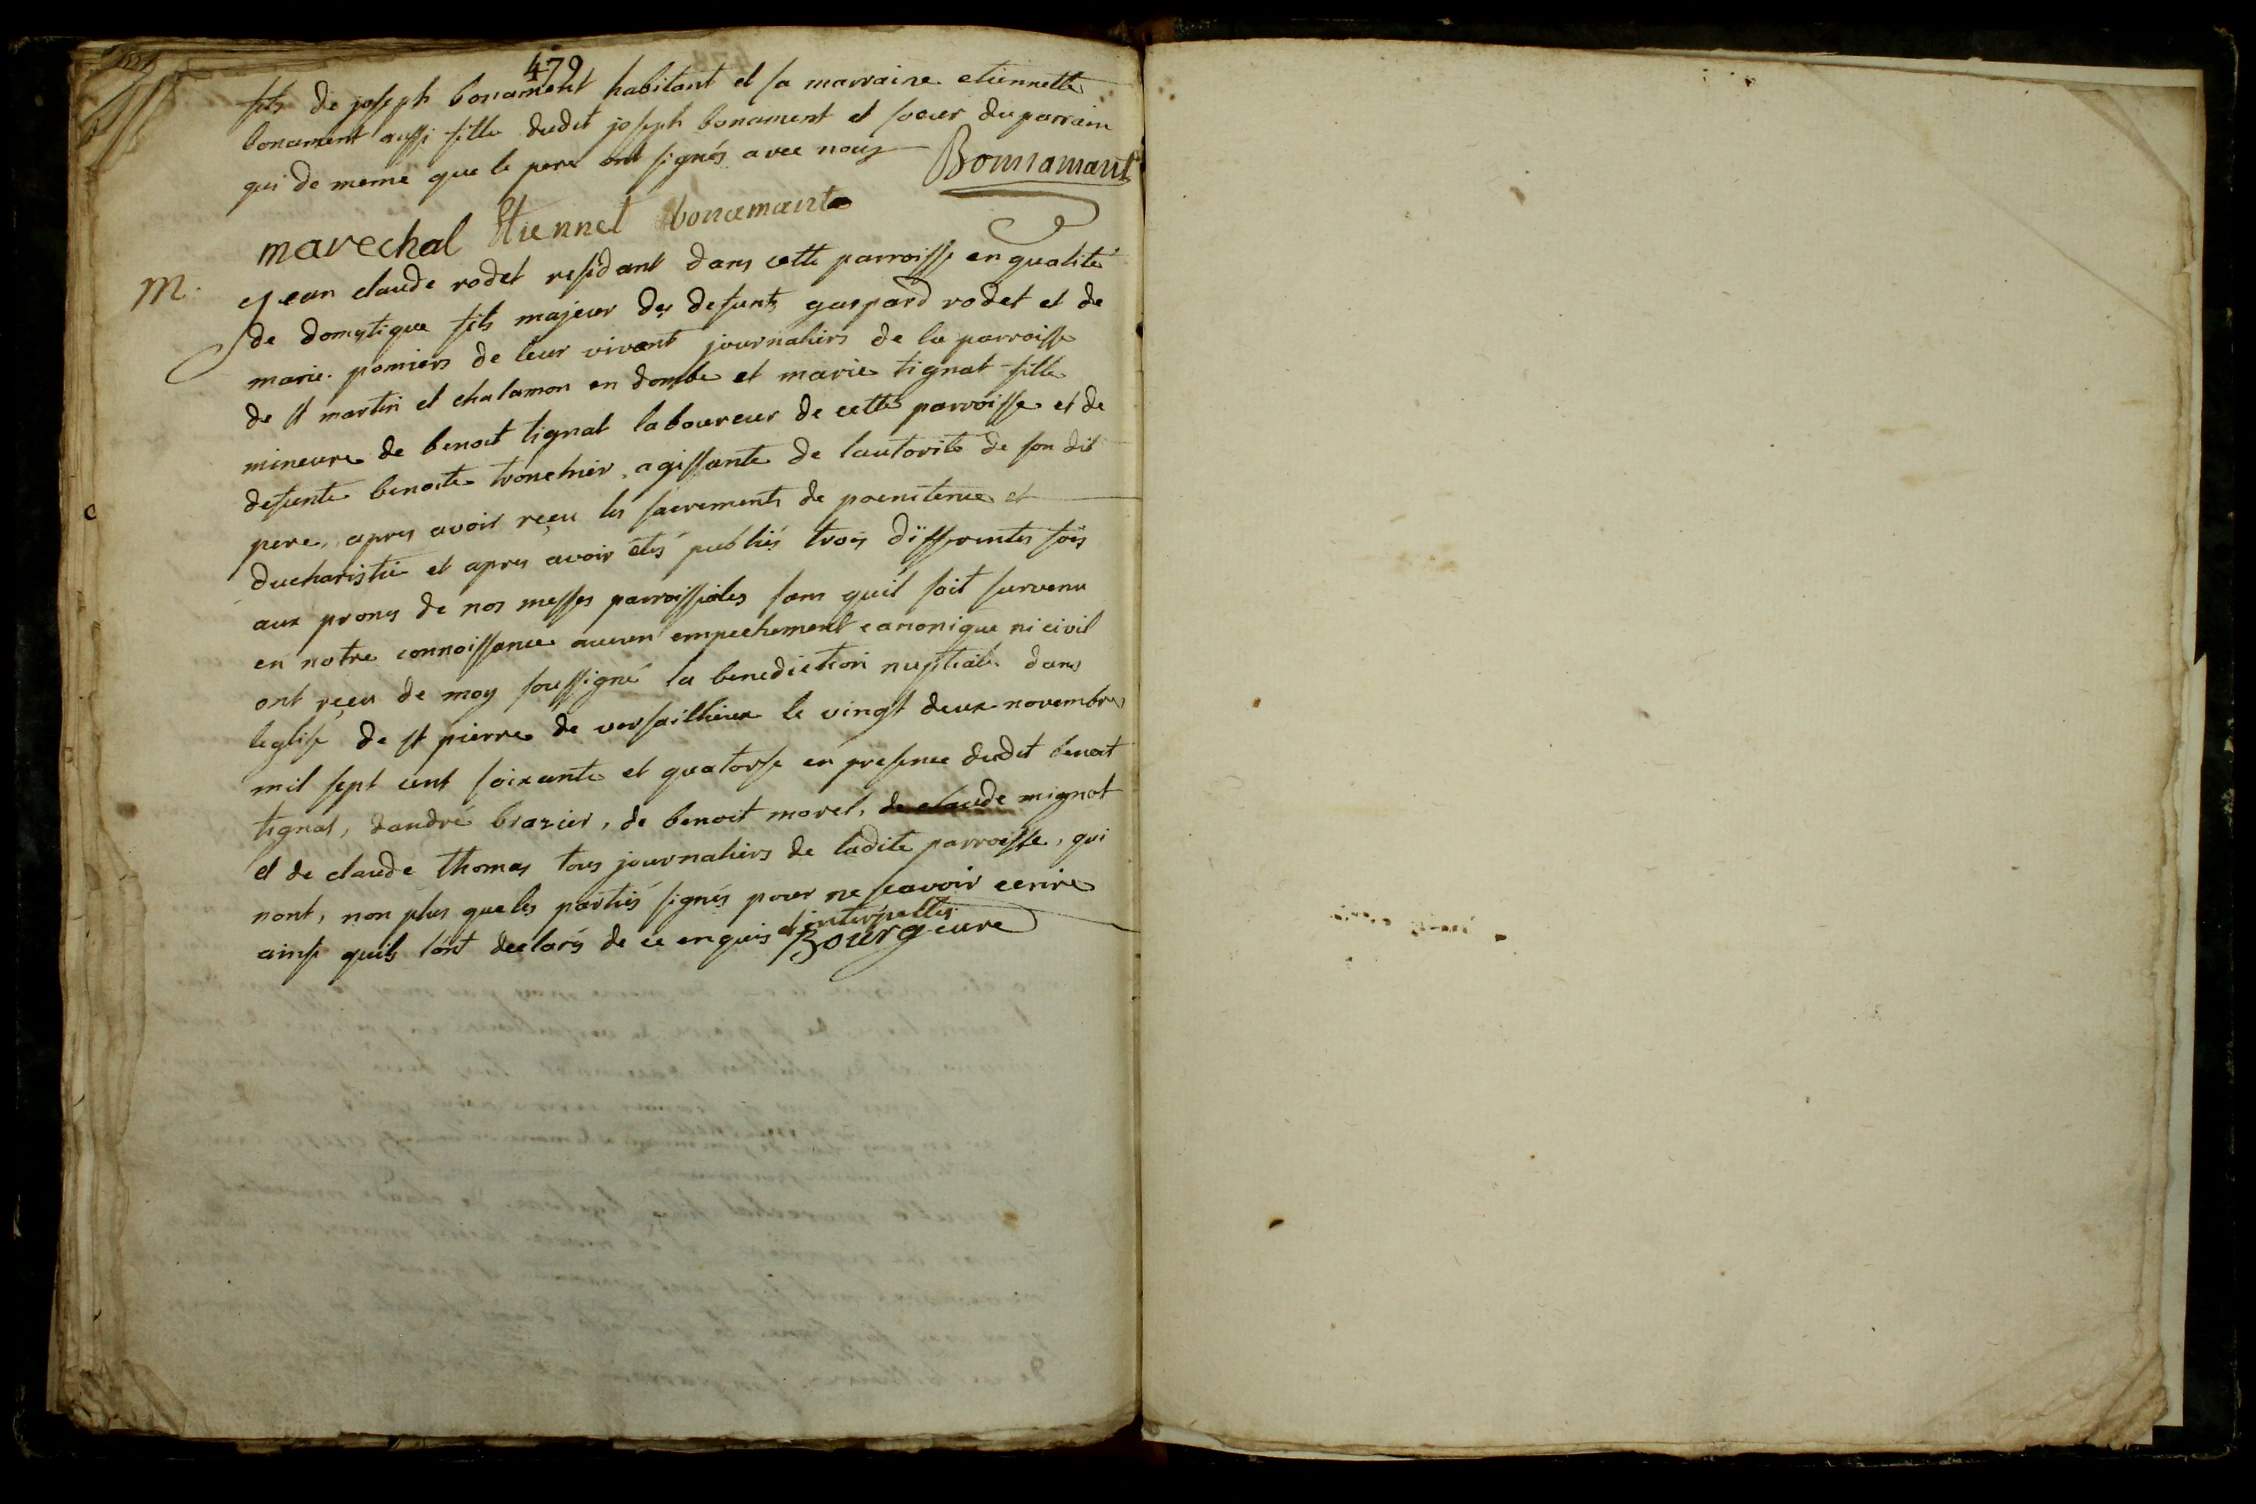 479
fils de joseph bonament habitant et sa marraine etiennette
bonament aussi fille dudit joseph bonament et soeur du parrain
qui de meme que le pere ont signés avec nous
Bonnamant
marechal Etiennet bonamant
M.
Jean claude rodet residant dans cette parroisse en qualité
de domestique fils majeur des defunts gaspard rodet et de
marie pomiers de leur vivant journaliers de la parroisse
de st martin et chalamon en dombe et marie tignat fille
mineure de benoit tignat laboureur de cette parroisse et de
defunte benoite tronchier, agissante de lautorité de son dit
pere, apres avoir reçeu les sacrements de poenitence et
ducharistie et apres avoir étés publiés trois differentes fois
aux prones de nos messes parroissiales sans quil soit survenu
en notre connoissance aucun empechement canonique ni civil
ont reçeu de moy soussigné la benediction nuptiale dans
leglise de st pierre de versailleux le vingt deux novembre
mil sept cent soixante et quatorse en presence dudit benoit
tignat, dandré brazier, de benoit morel, de claude mignot
et de claude thomas tous journaliers de ladite parroisse, qui
nont, non plus que les partiés signés pour ne scavoir ecrire
ainsi quils lont declarés de ce enquis et interpellés
Bourg curé